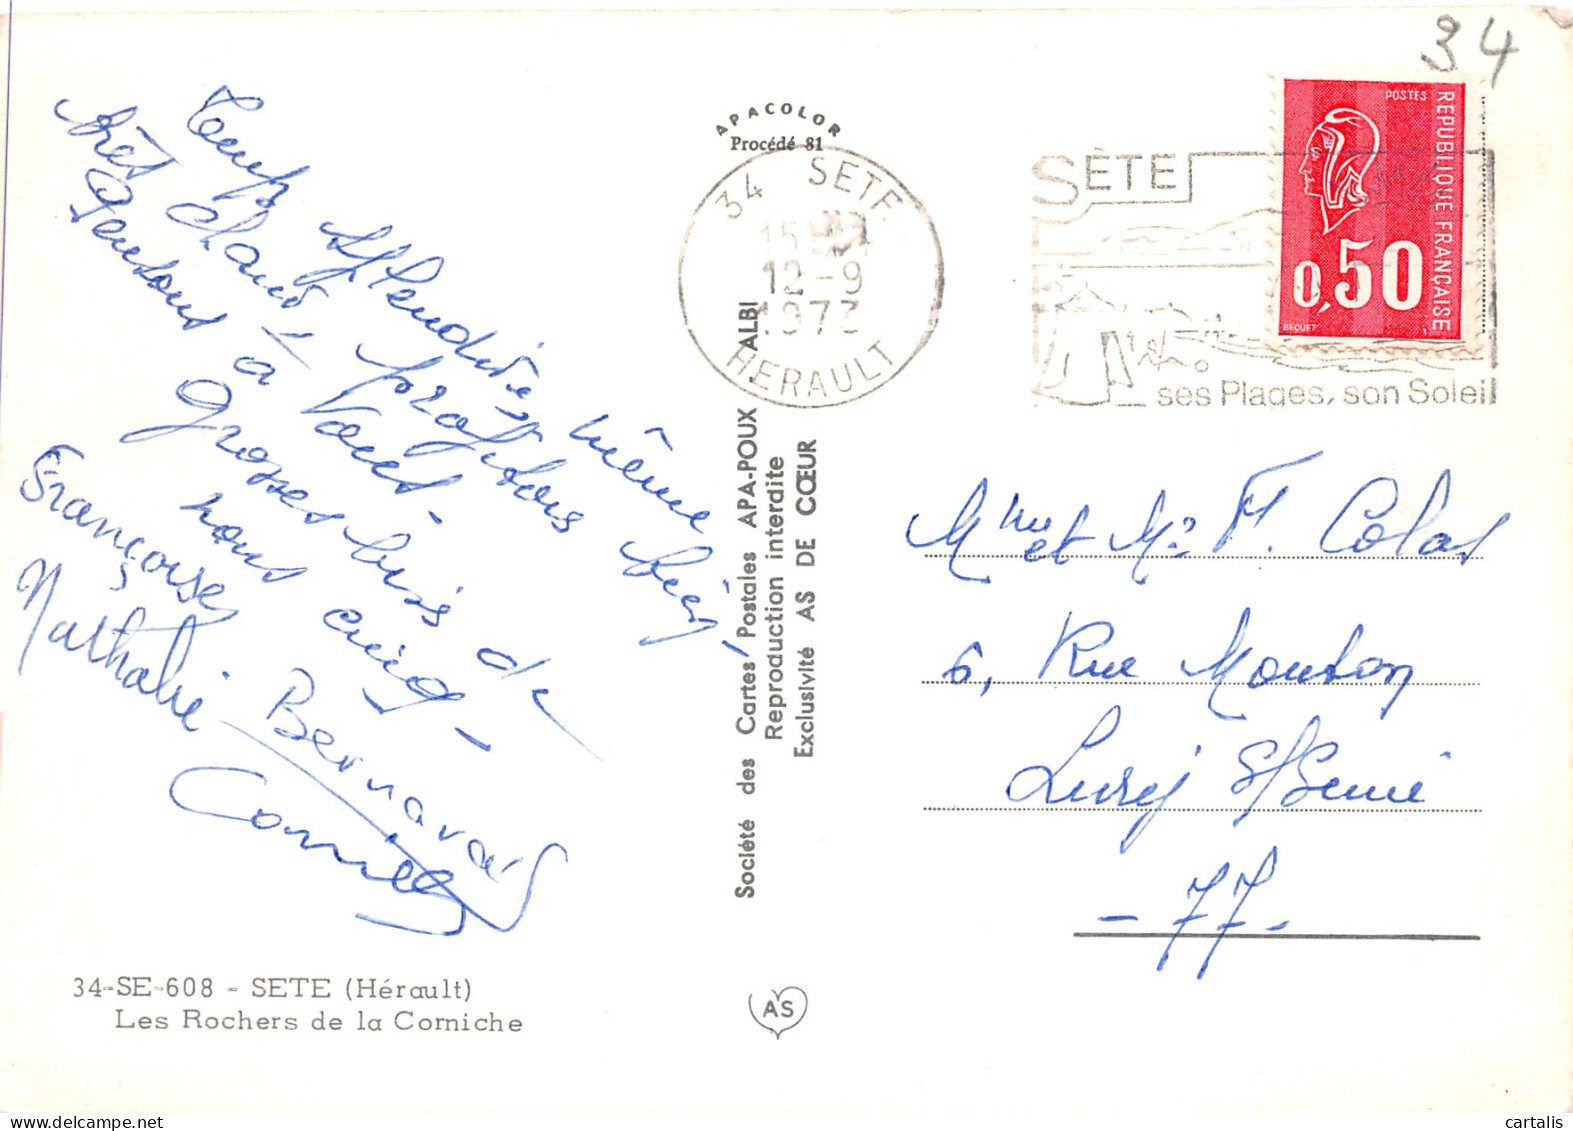 34
APACOLOR
Procédé 81
34 SETE
12-9
1973
HERAULT
SÈTE
ses Plages, son Soleil
POSTES
REPUBLIQUE FRANÇAISE
0,50
BEQUET
Temps splendide, même
très chaud, profitons bien,
Pensons à Vous.
Grosses bises de
nous cinq -
Françoise
Nathalie Bernard
Société des Cartes Postales APA-POUX ALBI
Reproduction interdite
Exclusivité AS DE CŒUR
Mme et Mr F. Colas
6, Rue Mouton
- 77 -
34-SE-608 - SETE (Hérault)
Les Rochers de la Corniche
AS
cartalis
delcampe.net